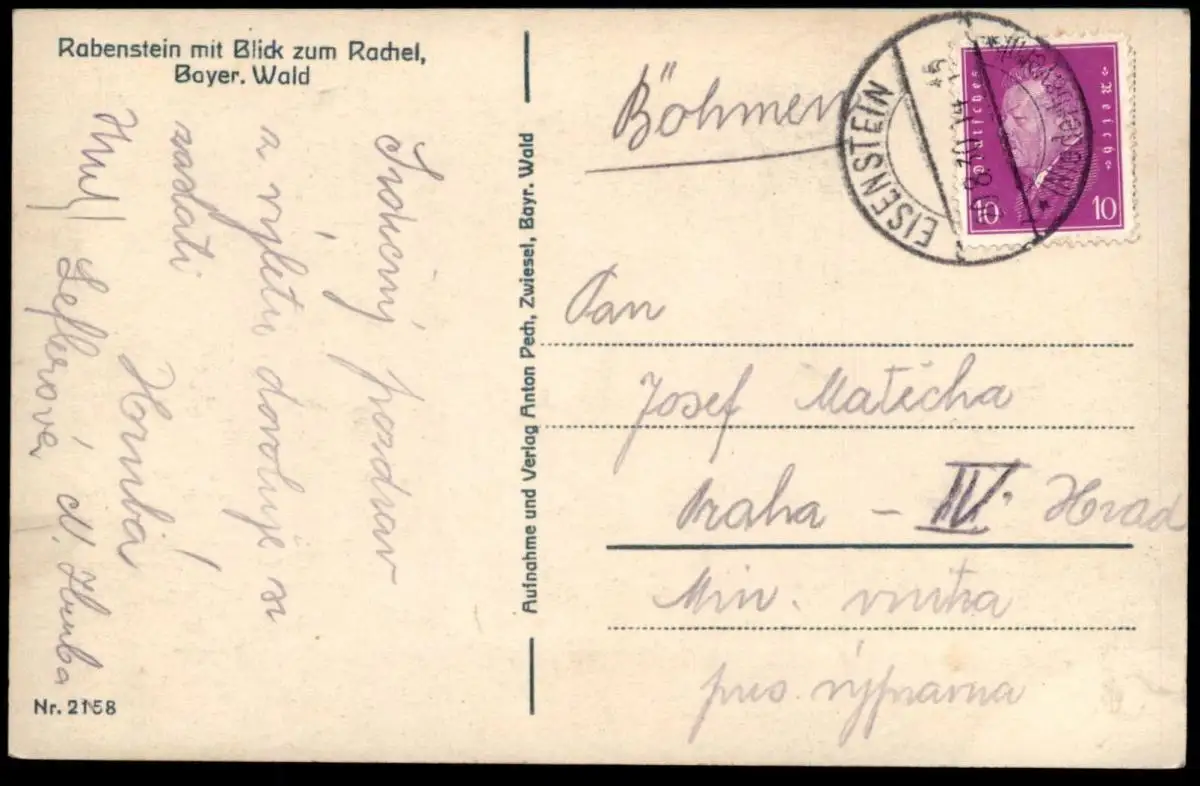 Rabenstein mit Blick zum Rachel,
Bayer. Wald
Srdečný pozdrav
a výletu dovoluje si
zaslati
Hruba
Leflerová, M. Hruba
Nr. 2158
Aufnahme und Verlag Anton Pech, Zwiesel, Bayr. Wald
Böhmen
EISENSTEIN
Deutsches Reich
10 10
Pan
Josef Matěcha
Praha – IV. Hrad
Min. vnitra
pres. výpravna